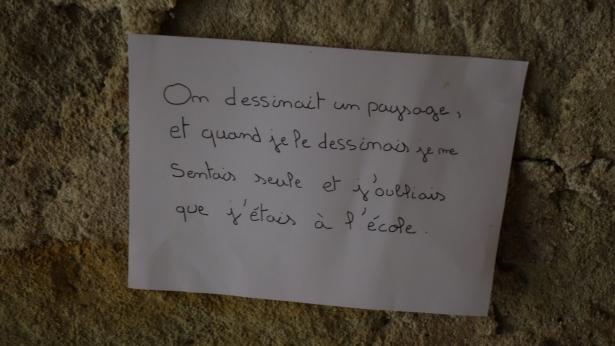 On dessinait un paysage,
et quand je le dessinais je me
Sentais seule et j'oubliais
que j'étais à l'école.